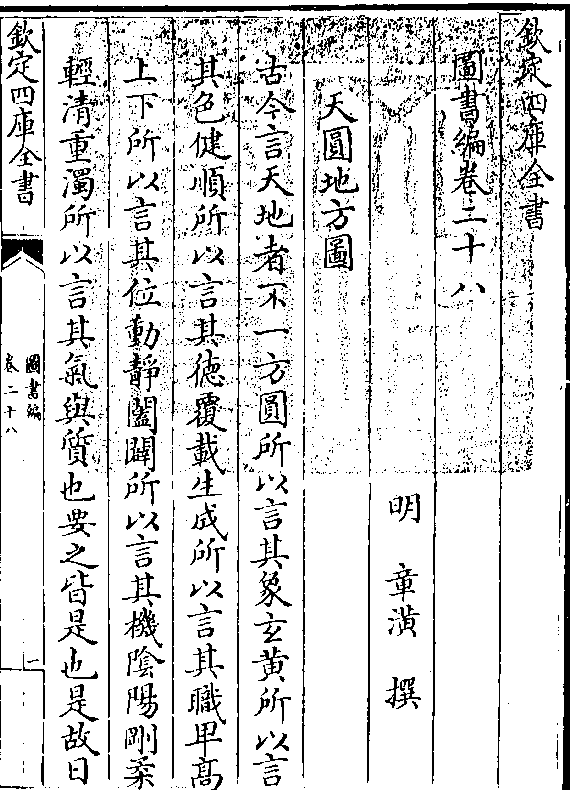 欽定四庫全書
圖書編卷二十八
明 章潢 撰
天圓地方圖
古今言天地者不一方圓所以言其象玄黄所以言
其色健順所以言其德覆載生成所以言其職卑高
上下所以言其位動靜闔闢所以言其機陰陽剛柔
輕清重濁所以言其氣與質也要之皆是也是故日
欽定四庫全書
圖書編
卷二十八
一